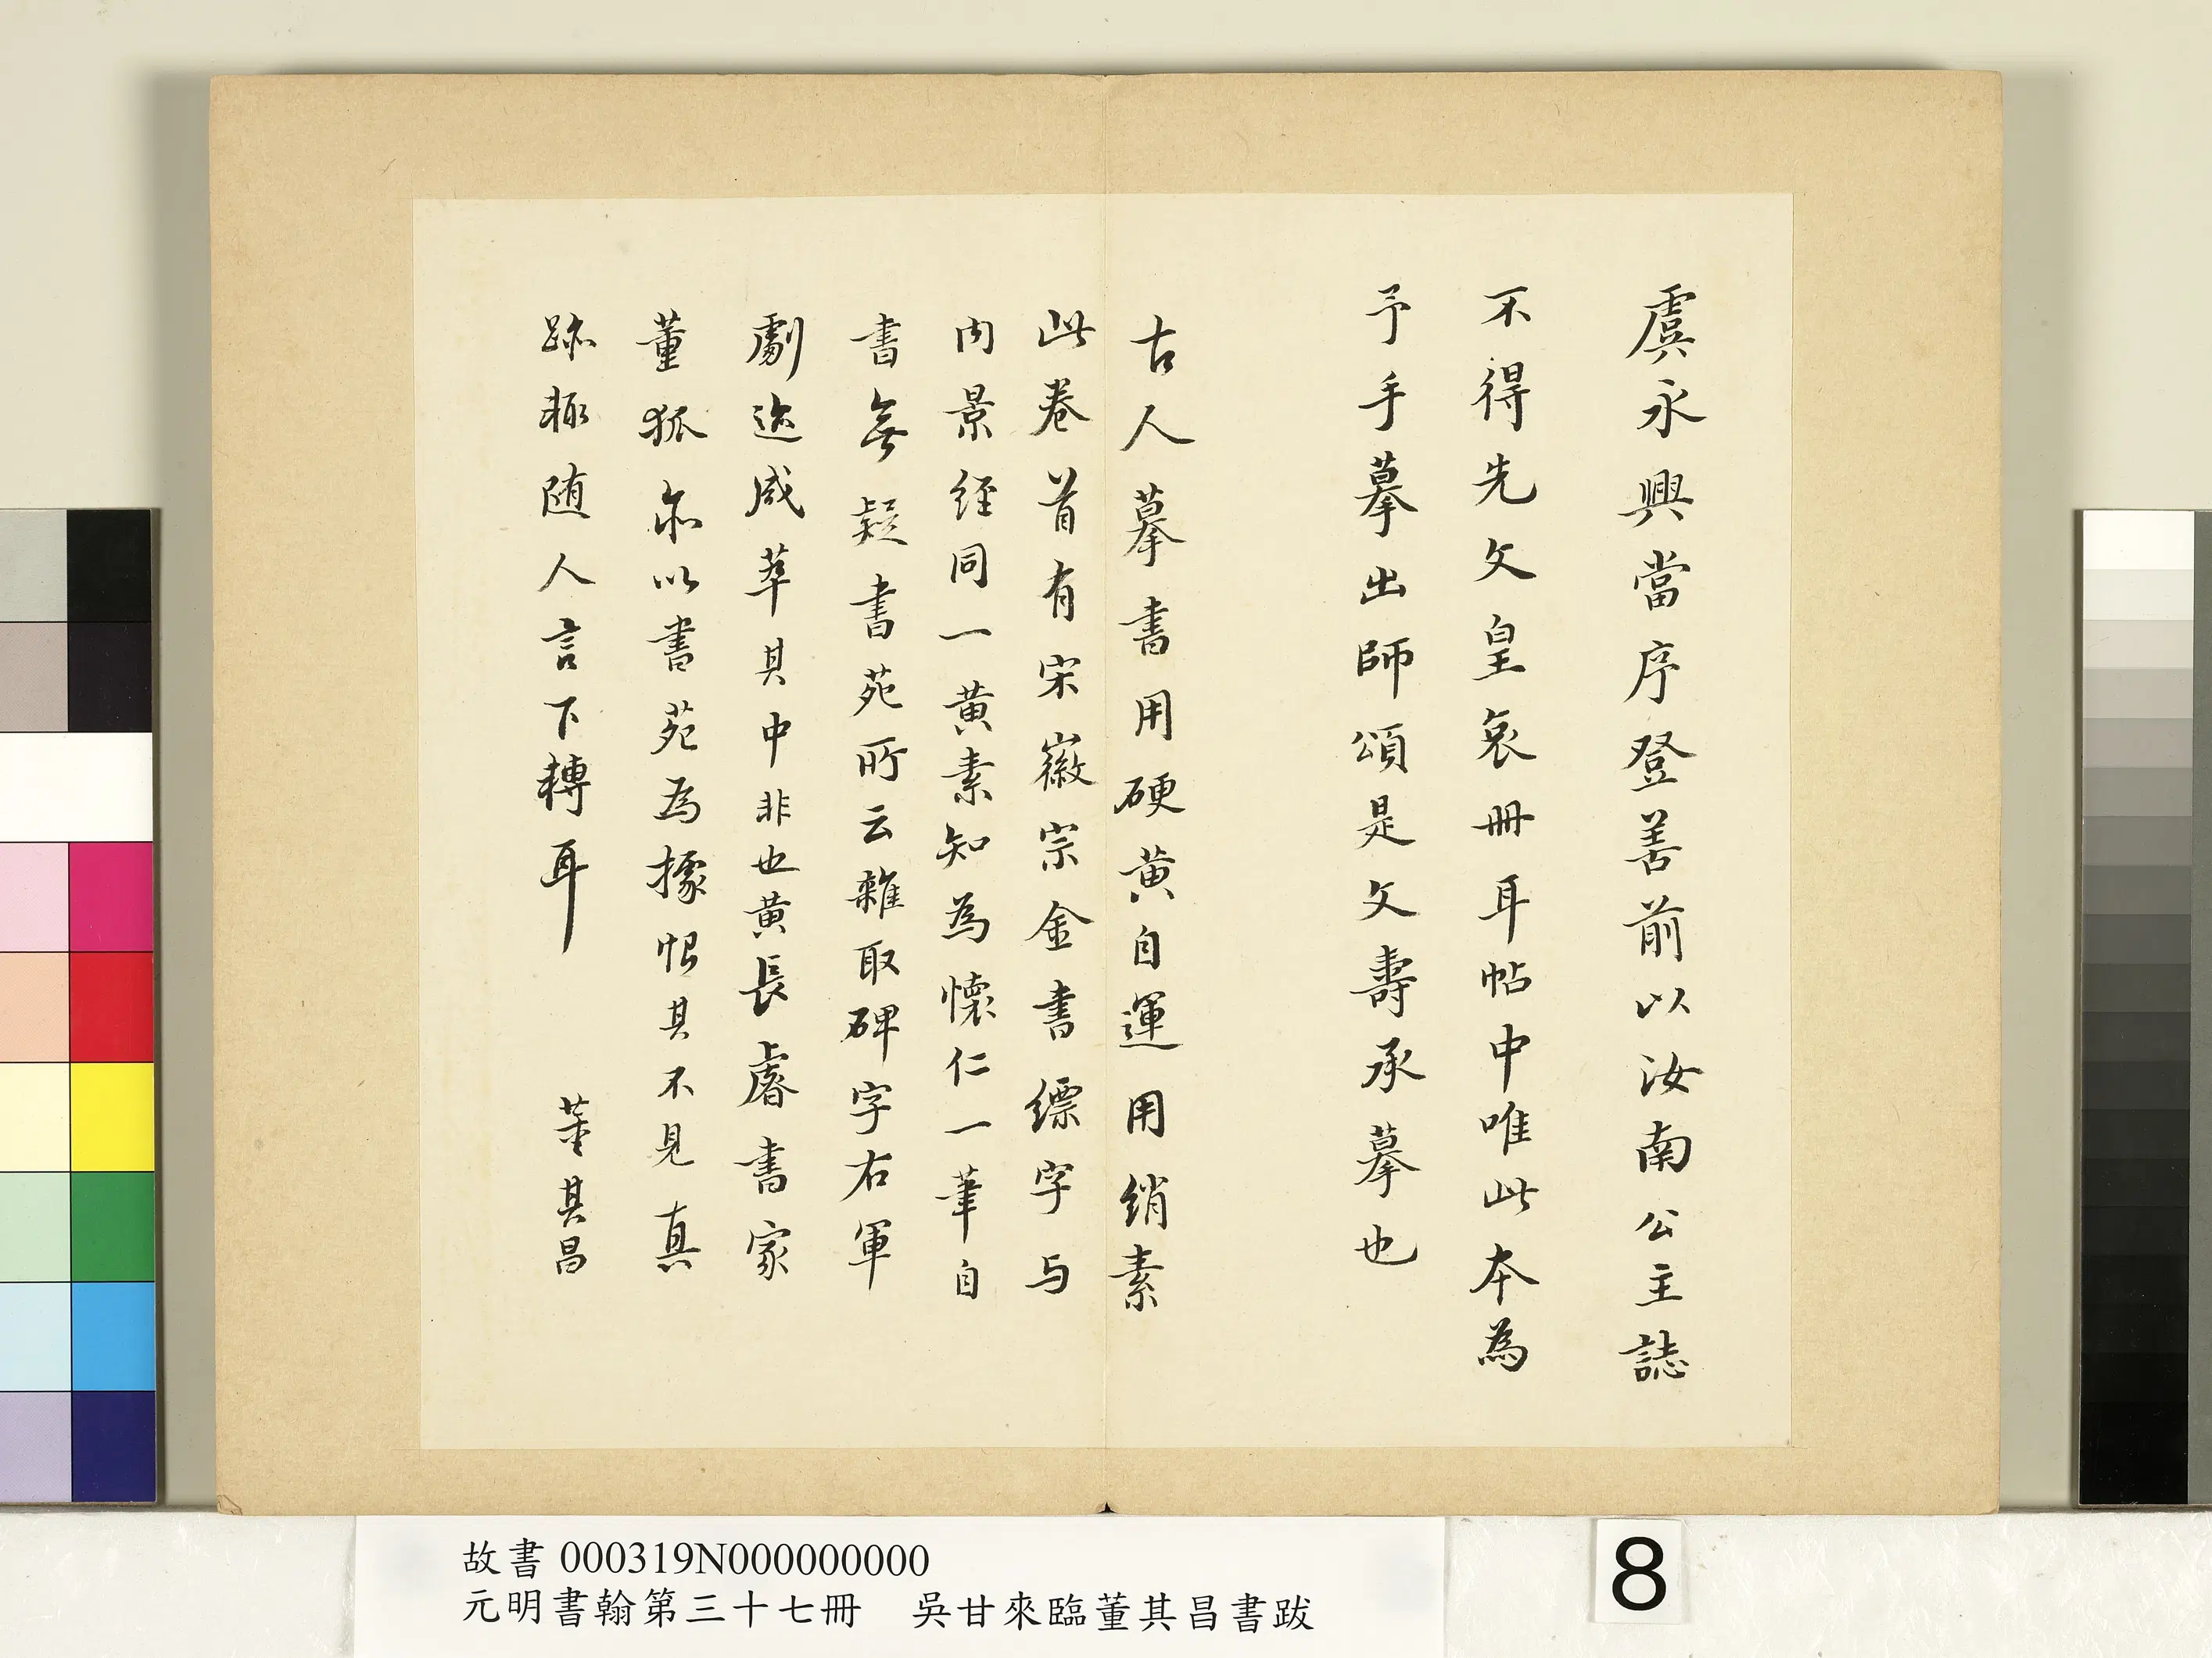 虞永興當序登善前以汝南公主誌
不得先文皇哀冊耳帖中唯此本為
予手摹出師頌是文壽承摹也
古人摹書用硬黃自運用絹素
此卷首有宋徽宗金書縹字与
内景經同一黃素知為懷仁一筆自
書無疑書苑所云雜取碑字右軍
劇迹咸萃其中非也黃長睿書家
董狐亦以書苑為據恨其不見真
跡輒随人言下轉耳
董其昌
故書 000319N000000000
元明書翰第三十七冊 吳甘來臨董其昌書跋
8